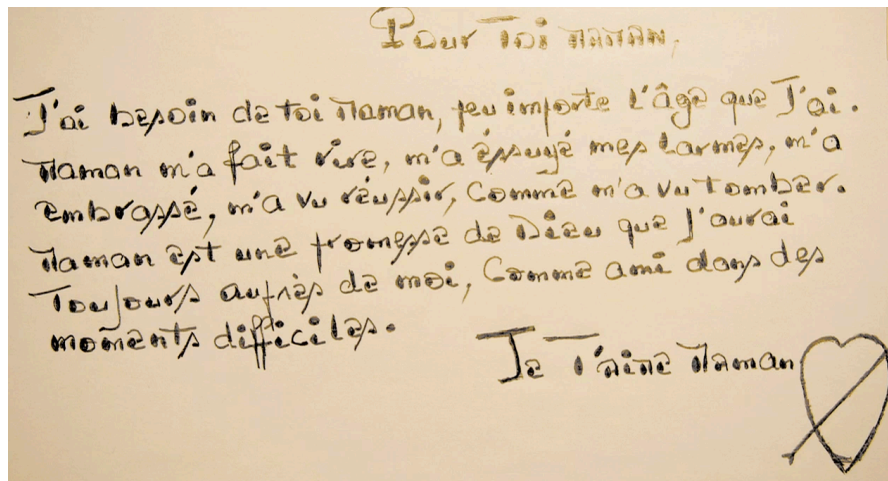 Pour Toi MAMAN,
J'ai besoin de toi Maman, peu importe l'âge que J'ai.
Maman m'a fait rire, m'a éssuyé mes larmes, m'a
embrassé, m'a vu réussir, Comme m'a vu tomber.
Maman est une promesse de Dieu que J'aurai
Toujours auprès de moi, Comme ami dans des
moments difficiles.
Je T'aime Maman